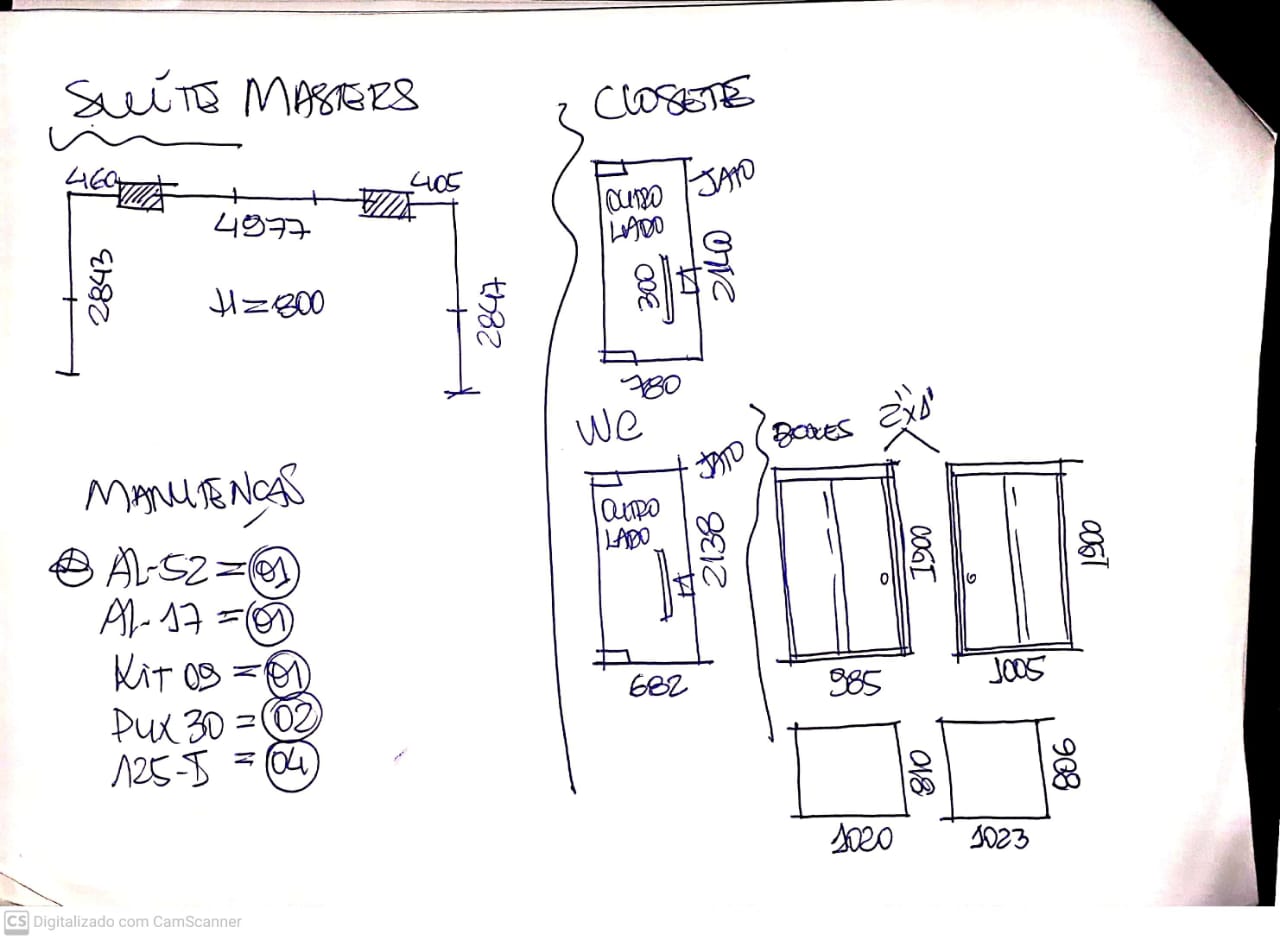 SUÍTE MASTERS
460
405
4977
2843
H=800
2847
MANUTENÇAS
AL-52 = 01
AL-17 = 01
Kit 09 = 01
PUX 30 = 02
125-I = 04
CLOSETE
JATO
OUTRO
LADO
300
2140
780
WC
JATO
OUTRO
LADO
2138
682
BOXES
2"x1"
1900
1900
985
1005
810
806
1020
1023
CS Digitalizado com CamScanner